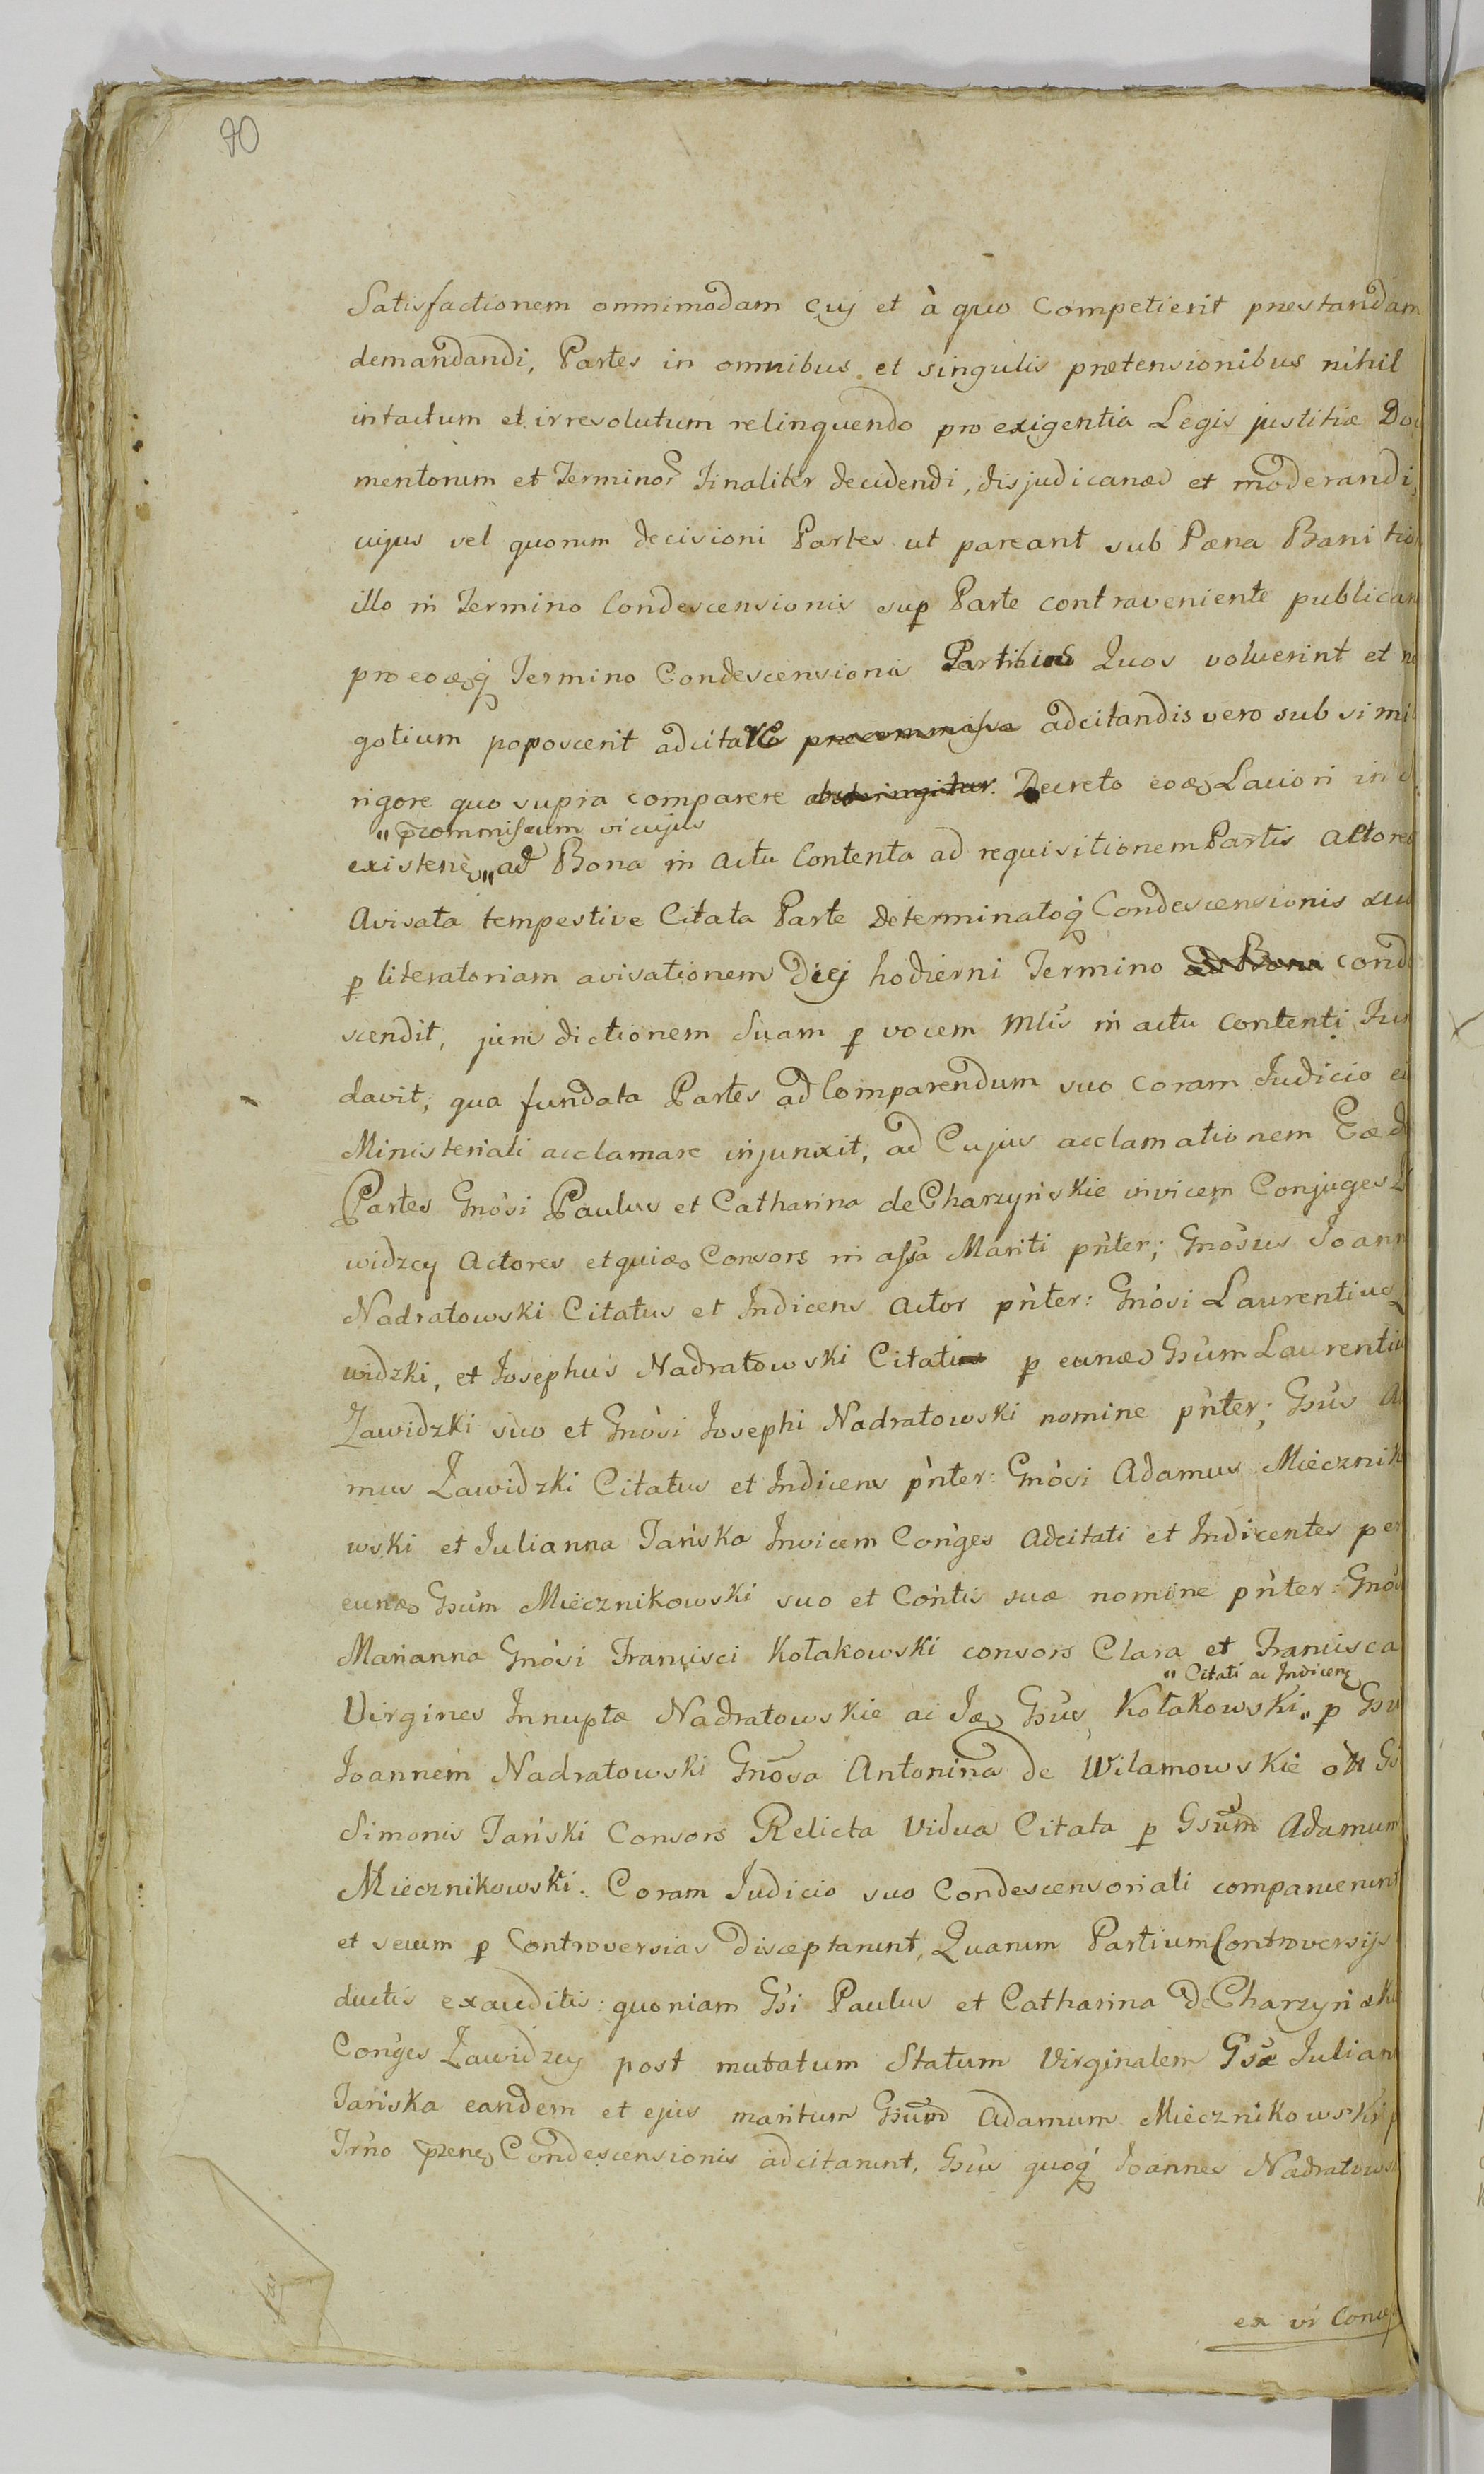 80
Satisfactionem omnimodam cuj et à quo Competierit præstandam
demandandi, Partes in omnibus et singulis prætensionibus nihil
intactum et irresolutum relinquendo pro exigentia Legis justitiæ Do
mentorum et Terminor Finaliter decidendi, disjudicand et moderandi,
cujus vel quorum decisioni Partes ut pareant sub Pæna Banitio
illo in Termino Condescensionis sup Parte contraveniente publican
pro Termino Condescensionis Partibus Quos voluerint et ne
gotium poposcerit adcitare adcitandis vero sub simi
rigore quo supra comparere Decreto Laciori in
" commissum vi cujus
existen " ad Bona in actu Contenta ad requisitionem Partis Actorea
Avisata tempestive Citata Parte Determinatoq Condescensionis suæ
p literatoriam avisationem Diej hodierni Termino ad Bona cond
scendit, jurisdictionem Suam p vocem Mlis in actu contenti Fun
davit, qua fundata Partes ad Comparendum suo coram Judicio ei
Ministeriali acclamare injunxit, ad Cujus acclamationem Eæd
Partes Gnosi Paulus et Catharina de Charzyńskie invicem Conjuges Za
widzcy Actores et Consors in assa Mariti pnter; Gnosus Joann
Nadratowski Citatus et Indicens Actor pnter: Gnosi Laurentius Za
widzki, et Josephus Nadratowski Citati p eund Gsum Laurentiu
Zawidzki suo et Gnosi Josephi Nadratowski nomine pnter; Gsus A
mus Zawidzki Citatus et Indicens pnter: Gnosi Adamus Mieczniko
wski et Julianna Tańska Invicem Conges Adcitati et Indicentes per
eund Gsum Miecznikowski suo et Contis suæ nomine pnter: Gnos
Marianna Gnosi Francisci Kołakowski consors Clara et Francisca
" Citati ac Indicen
Virgines Innuptæ Nadratowskie ac Gsus Kołakowski " p Gsu
Joannem Nadratowski Gnosa Antonina de Wilamowskie oli Gs
Simonis Tański Consors Relicta Vidua Citata p Gsum Adamum
Miecznikowski. Coram Judicio suo Condescensoriali comparuerunt
et secum p Controversias disceptarunt, Quarum Partium Controversijs
ductis exauditis: quoniam Gsi Paulus et Catharina de Charzyńsk
Conges Zawidzcy post mutatum Statum Virginalem Gsæ Julian
Tańska eandem et ejus maritum Gsum Adamum Miecznikowski p
Trno Condescensionis adcitarunt, Gsus quoq Joannes Nadratows
ex vi Conde